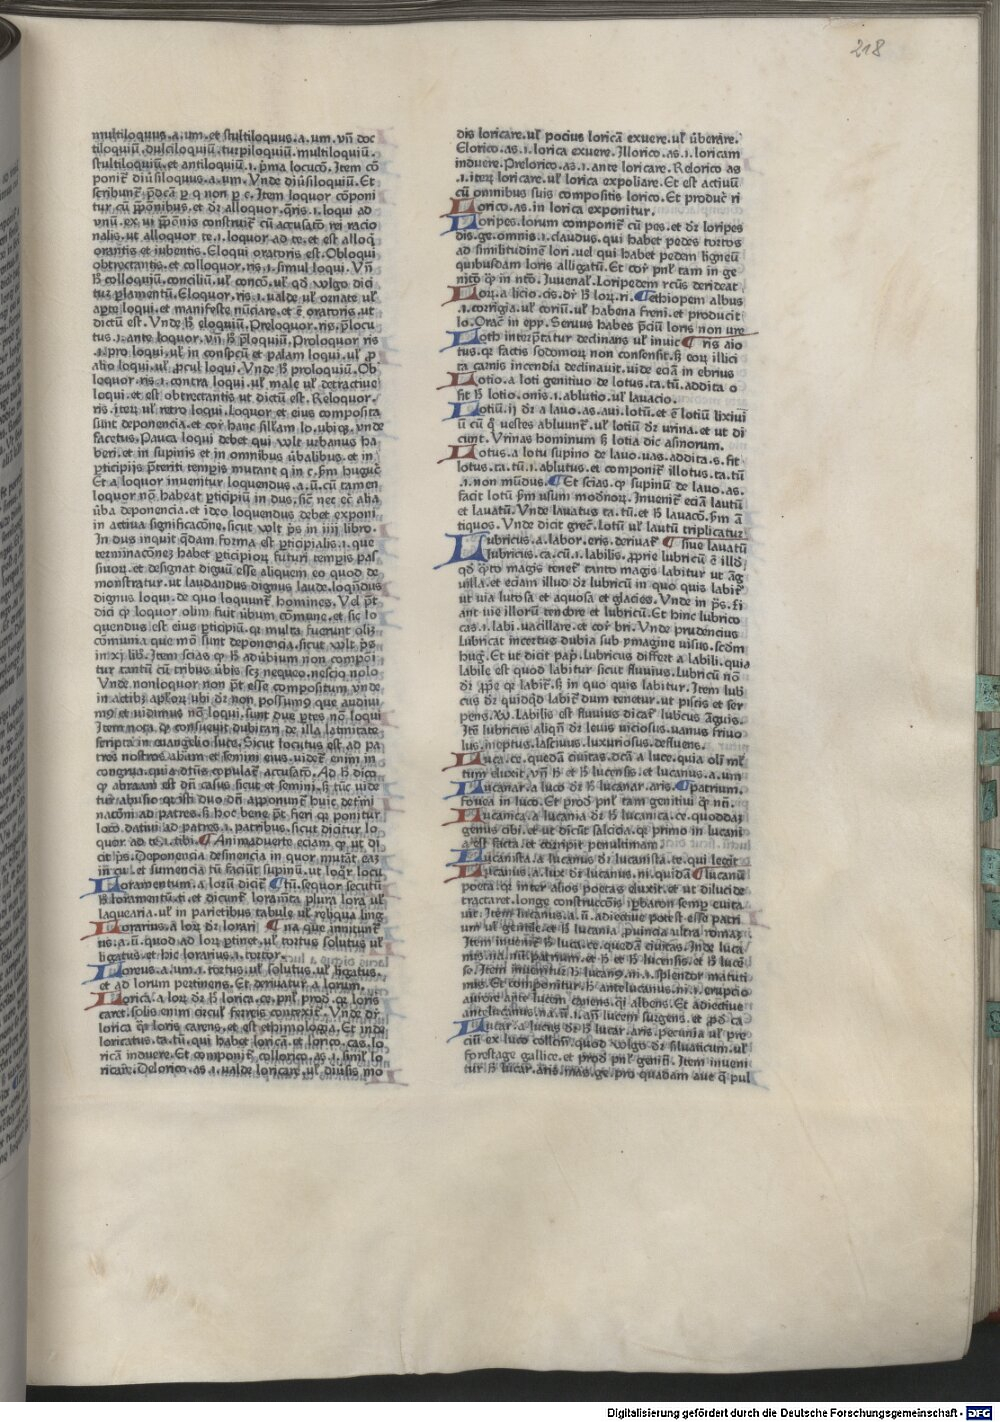 218
multiloquus.a.um.et stultiloquus.a.um.vñ doc
tiloquiū.dulciloquiū.turpiloquiū.multiloquiū.
stultiloquiū.et antiloquiū.i.p̄ma locucō.Item cō
ponit᷑ diūsiloquus.a.um.Vnde diūsiloquiū.Et
scribunt᷑ p̄dcā p q non p c.Item loquor cōponi
tur cū p̄ponibus.et dr̄ alloquor.q̄ris.i.loqui ad
vnū.ex vi p̄pōnis construit᷑ cū accusatō rei racio
nalis.ut alloquor te.i.loquor ad te.et est alloq̄
orantis et iubentis.Eloqui oratoris est.Obloqui
obtrectantis.et colloquor.ris.i.simul loqui.Vñ
h̄ colloquiū.conciliū.ul̓ concō.ul̓ qd̓ volgo dici
tur p̱lamentū.Eloquor.ris.i.valde ul̓ ornate ul̓
ap̱te loqui.et manifeste nūciare.et ē oratoris.ut
dictū est.Vnde h̄ eloquiū.Preloquor.ris.p̄locu
tus.i.ante loquor.vñ h̄ p̄loquiū.Proloquor ris
.i.pro loqui.ul̓ in conspcū et palam loqui.ul̓ p̱
alio loqui.ul̓ p̱cul loqui.Vnde h̄ proloquiū.Ob
loquor.ris.i.contra loqui.ul̓ male ul̓ detractiue
loqui.et est obtrectantis ut dictū est.Reloquor.
ris.iteꝝ ul̓ retro loqui.Loquor et eius composita
sunt deponencia.et cor̄ hanc sill̓am lo.ubiqꝫ.vnde
facetus.Pauca loqui debet qui volt urbanus ha
beri.et in supinis et in omnibus ūbalibus.et in
p̱ticipijs p̄teriti temp̱is mutant q in c.s̄m huguc̄
Et a loquor inuenitur loquendus.a.ū.cū tamen
loquor nō habeat p̱ticipiū in dus.sic̄ nec ec̄ alia
ūba deponencia.et ideo loquendus debet exponi
in actiua significacōne.sicut volt p̄s in iiij libro.
In dus inquit q̄dam forma est p̱ticipialis.i.que
terminacōneꝫ habet p̱ticipioꝝ futuri temp̱is pas
siuoꝝ.et designat dignū esse aliquem eo quod de
monstratur.ut laudandus dignus laude.loqn̄dus
dignus loqui.de quo loquunt᷑ homines.Vel p̄t
dici ꝙ loquor olim fuit ūbum cōmune.et sic lo
quendus est eius p̱ticipiū.qꝛ multa fuerunt olī
cōmunia que mō sunt deponencia.sicut volt p̄s
in xj lib.Item scias ꝙ h̄ adūbium non compōi
tur tantū cū tribus ūbis scꝫ nequeo.nescio nolo
Vnde nonloquor non p̄t esse compositum vnde
in actibꝫ ap̱loꝝ ubi dr̄ non possumꝰ que audiui
mꝰ et vidimus nō loqui.sunt due p̱tes nō loqui
Item nota ꝙ consueuit dubitari de illa latinitate
scripta in euangelio luce.Sicut locutus est ad pa
tres nostros.abm̄ et semini eius.videt᷑ enim in
congrua.quia dn̄s copulat᷑ accusatō.Ad h̄ dico
ꝙ abraam est dn̄ casus sicut et semini.s̄ tūc vide
tur abusio qꝛ isti duo dn̄ apponunt᷑ huic detmi
nacōni ad patres.s̄ hoc bene p̄t fieri qꝛ ponitur
loco datiui ad patres.i.patribus.sicut dicitur lo
quor ad te.i.tibi.¶ Animaduerte eciam ꝙ ut di
cit p̄s.Deponencia desinencia in quor mutāt eaꝫ
in cu.et sumencia tū faciūt supinū.ut loq̄r locu
Loramentum.a lorū dicit᷑ ¶ tū.sequor secutū
h̄ loramentū.ti.et dicunt᷑ loram̄ta plura lora ul̓
laquearia.ul̓ in parietibus tabule ul̓ reliqua lingͣ
Lorarius.a loꝝ dr̄ lorari ¶ na que innitunt᷑
us.a.ū.quod ad loꝝ p̱tinet.ul̓ tortus solutus ul̓
ligatus.et hic lorarius.i.tortor.
Loreus.a.um.i.tortus.ul̓ solutus.ul̓ ligatus.
et ad lorum pertinens.Et deriuatur a lorum.
Lorica.a loꝝ dr̄ h̄ lorica.ce.pn̄l̓ prod̓.qꝛ loris
caret.solis enim circul̓ ferreis contexit᷑.Vnde dr̄
lorica q̄si loris carens.et est ethimologia.Et inde
loricatus.ta.tū.qui habet loricā.et lorico.cas.lo
ricā induere.Et componit᷑ collorico.as.i.simil̓ lo
ricare.Delorico.as.i.valde loricare.ul̓ diūsis mo
dis loricare.ul̓ pocius loricā exuere.ul̓ ūberare.
Elorico.as.i.lorica exuere.Illorico.as.i.loricam
induere.Prelorico.as.i.ante loricare.Relorico as
.i.iteꝝ loricare.ul̓ lorica expoliare.Et est actiuū
cū omnibus suis compositis lorico.Et produc̄ ri
Lorico.as.in lorica exponitur.
Loripes.lorum componit᷑ cū pes.et dr̄ loripes
dis.ge.omnis.i.claudus.qui habet pedes tortos
ad similitudinē lori.uel qui habet pedem ligneū
quibusdam loris alligatū.Et cor̄ pn̄l̓ tam in ge
nitō ꝙ in nt̄ō.Iuuenal̓.Loripedem rc̄us derideat
Loꝝ a licio.cis.dr̄ h̄ loꝝ.ri.¶ ethiopem albus
.i.corrigia.ul̓ coriū.ul̓ habena freni.et producit
lo.Orac̄ in epp̱.Seruus habes p̄ciū loris non ure
Loth interp̱tatur declinans ul̓ inuic ¶ ris aio
tus.qꝛ factis sodomoꝝ non consensit.s̄ eoꝝ illici
ta carnis incendia declinauit.vide eciā in ebrius
Lotio.a loti genitiuo de lotus.ta.tū.addita o
fit h̄ lotio.onis.i.ablutio.ul̓ lauacio.
Lotiū.ij dr̄ a lauo.as.aui.lotū.et ē lotiū lixiui
ū cū q̊ vestes abluunt᷑.ul̓ lotiū dr̄ urina.et ut di
cunt.Vrinas hominum s̄ lotia dic asinorum.
Lotus.a lotu supino de lauo.uas.addita.s.fit
lotus.ta.tū.i.ablutus.et componit᷑ illotus.ta.tū
.i.non mūdus.¶ Et scias.ꝙ supinū de lauo.as.
facit lotū s̄m usum modnoꝝ.Inuenit᷑ eciā lautū
et lauatū.Vnde lauatus ta.tū.et h̄ lauacō.s̄m ā
tiquos.Vnde dicit grec̄.Lotū ul̓ lautū triplicatur
Lubricus.a.labor.eris.deriuat᷑ ¶ siue lauatū
lubricus.ca.cū.i.labilis.p̱prie lubricū ē illd̓
qd̓ q̄nto magis tenet᷑ tanto magis labitur ut āg
uilla.et eciam illud dr̄ lubricū in quo quis labit᷑
ut via lutosa et aquosa et glacies.Vnde in p̄s.fi
ant vie illorū tenebre et lubricū.Et hinc lubrico
cas.i.labi.vacillare.et cor̄ bri.Vnde prudencius
Lubricat incertus dubia sub ymagine visus.scdm
hug̓.Et ut dicit pap̱.Lubricus differt a labili.quia
labile est quod labitur sicut fluuius.Lubricū nō
dr̄ p̱prie qꝛ labit᷑.s̄ in quo quis labitur.Item lub
cus dr̄ quidqd̓ labit᷑ dum tenetur.ut piscis et ser
pens.vv.Labilis est fluuius dicat᷑ lubcus āguis.
Itē lubricus aliqn̄ dr̄ leuis viciosus.vanus friuo
lus.ineptus.lasciuus.luxuriosus.defluens.
Luca.ce.quedā ciuitas.dcā a luce.quia oli̅ ml̓
tum eluxit.vñ h̄ et h̄ lucensis.et lucanus.a.um
Lucanar.a luco dr̄ h̄ lucanar.aris.¶ patrium.
fouea in luco.Et prod̓ pn̄l̓ tam genitiui ꝙ nn̄.
Lucanica.a lucania dr̄ h̄ lucanica.ce.quoddaꝫ
genus cibi.et ut dicūt salcicia.qꝛ primo in lucani
a est facta.et corripit penultimam.
Lucanista.a lucanus dr̄ lucanista.te.qui legit
Lucanus.a lux dr̄ lucanus.ni.quidā ¶ lucanū
poeta.qꝛ inter alios poetas eluxit.et ut dilucide
tractaret.longe construccōis ip̱baron semp̱ euita
uit.Item lucanus.a.ū.adiectiue potest esse patri
um ul̓ gentile.et h̄ lucania.p̱uincia ultra romaꝫ
Item inuenit᷑ h̄ luca.ce.quedā ciuitas.Inde luca
nus.na.nū.patrium.et h̄ et h̄ lucensis.et h̄ lucē
se.Item inuenitur h̄ lucanꝰ.ni.i.splendor matuti
nus.Et componitur.h̄ antelucanus.ni.i.erupcio
aurore ante lucem canens.q̄si albens.Et adiectiue
antelucanus.na.ū.i.an̄ lucem surgens.et p̱d̓ ca
Lucar.a lucus dr̄ h̄ lucar.aris.pecunia ul̓ pre
ciū ex luco collcm̄.quod volgo dr̄ siluaticum.ul̓
forestage gallice.et prod̓ pn̄l̓ genit̄i.Item inueni
tur h̄ lucar.aris.mas.ge.pro quadam aue q̄ pul
Digitalisierung gefördert durch die Deutsche Forschungsgemeinschaft - DFG